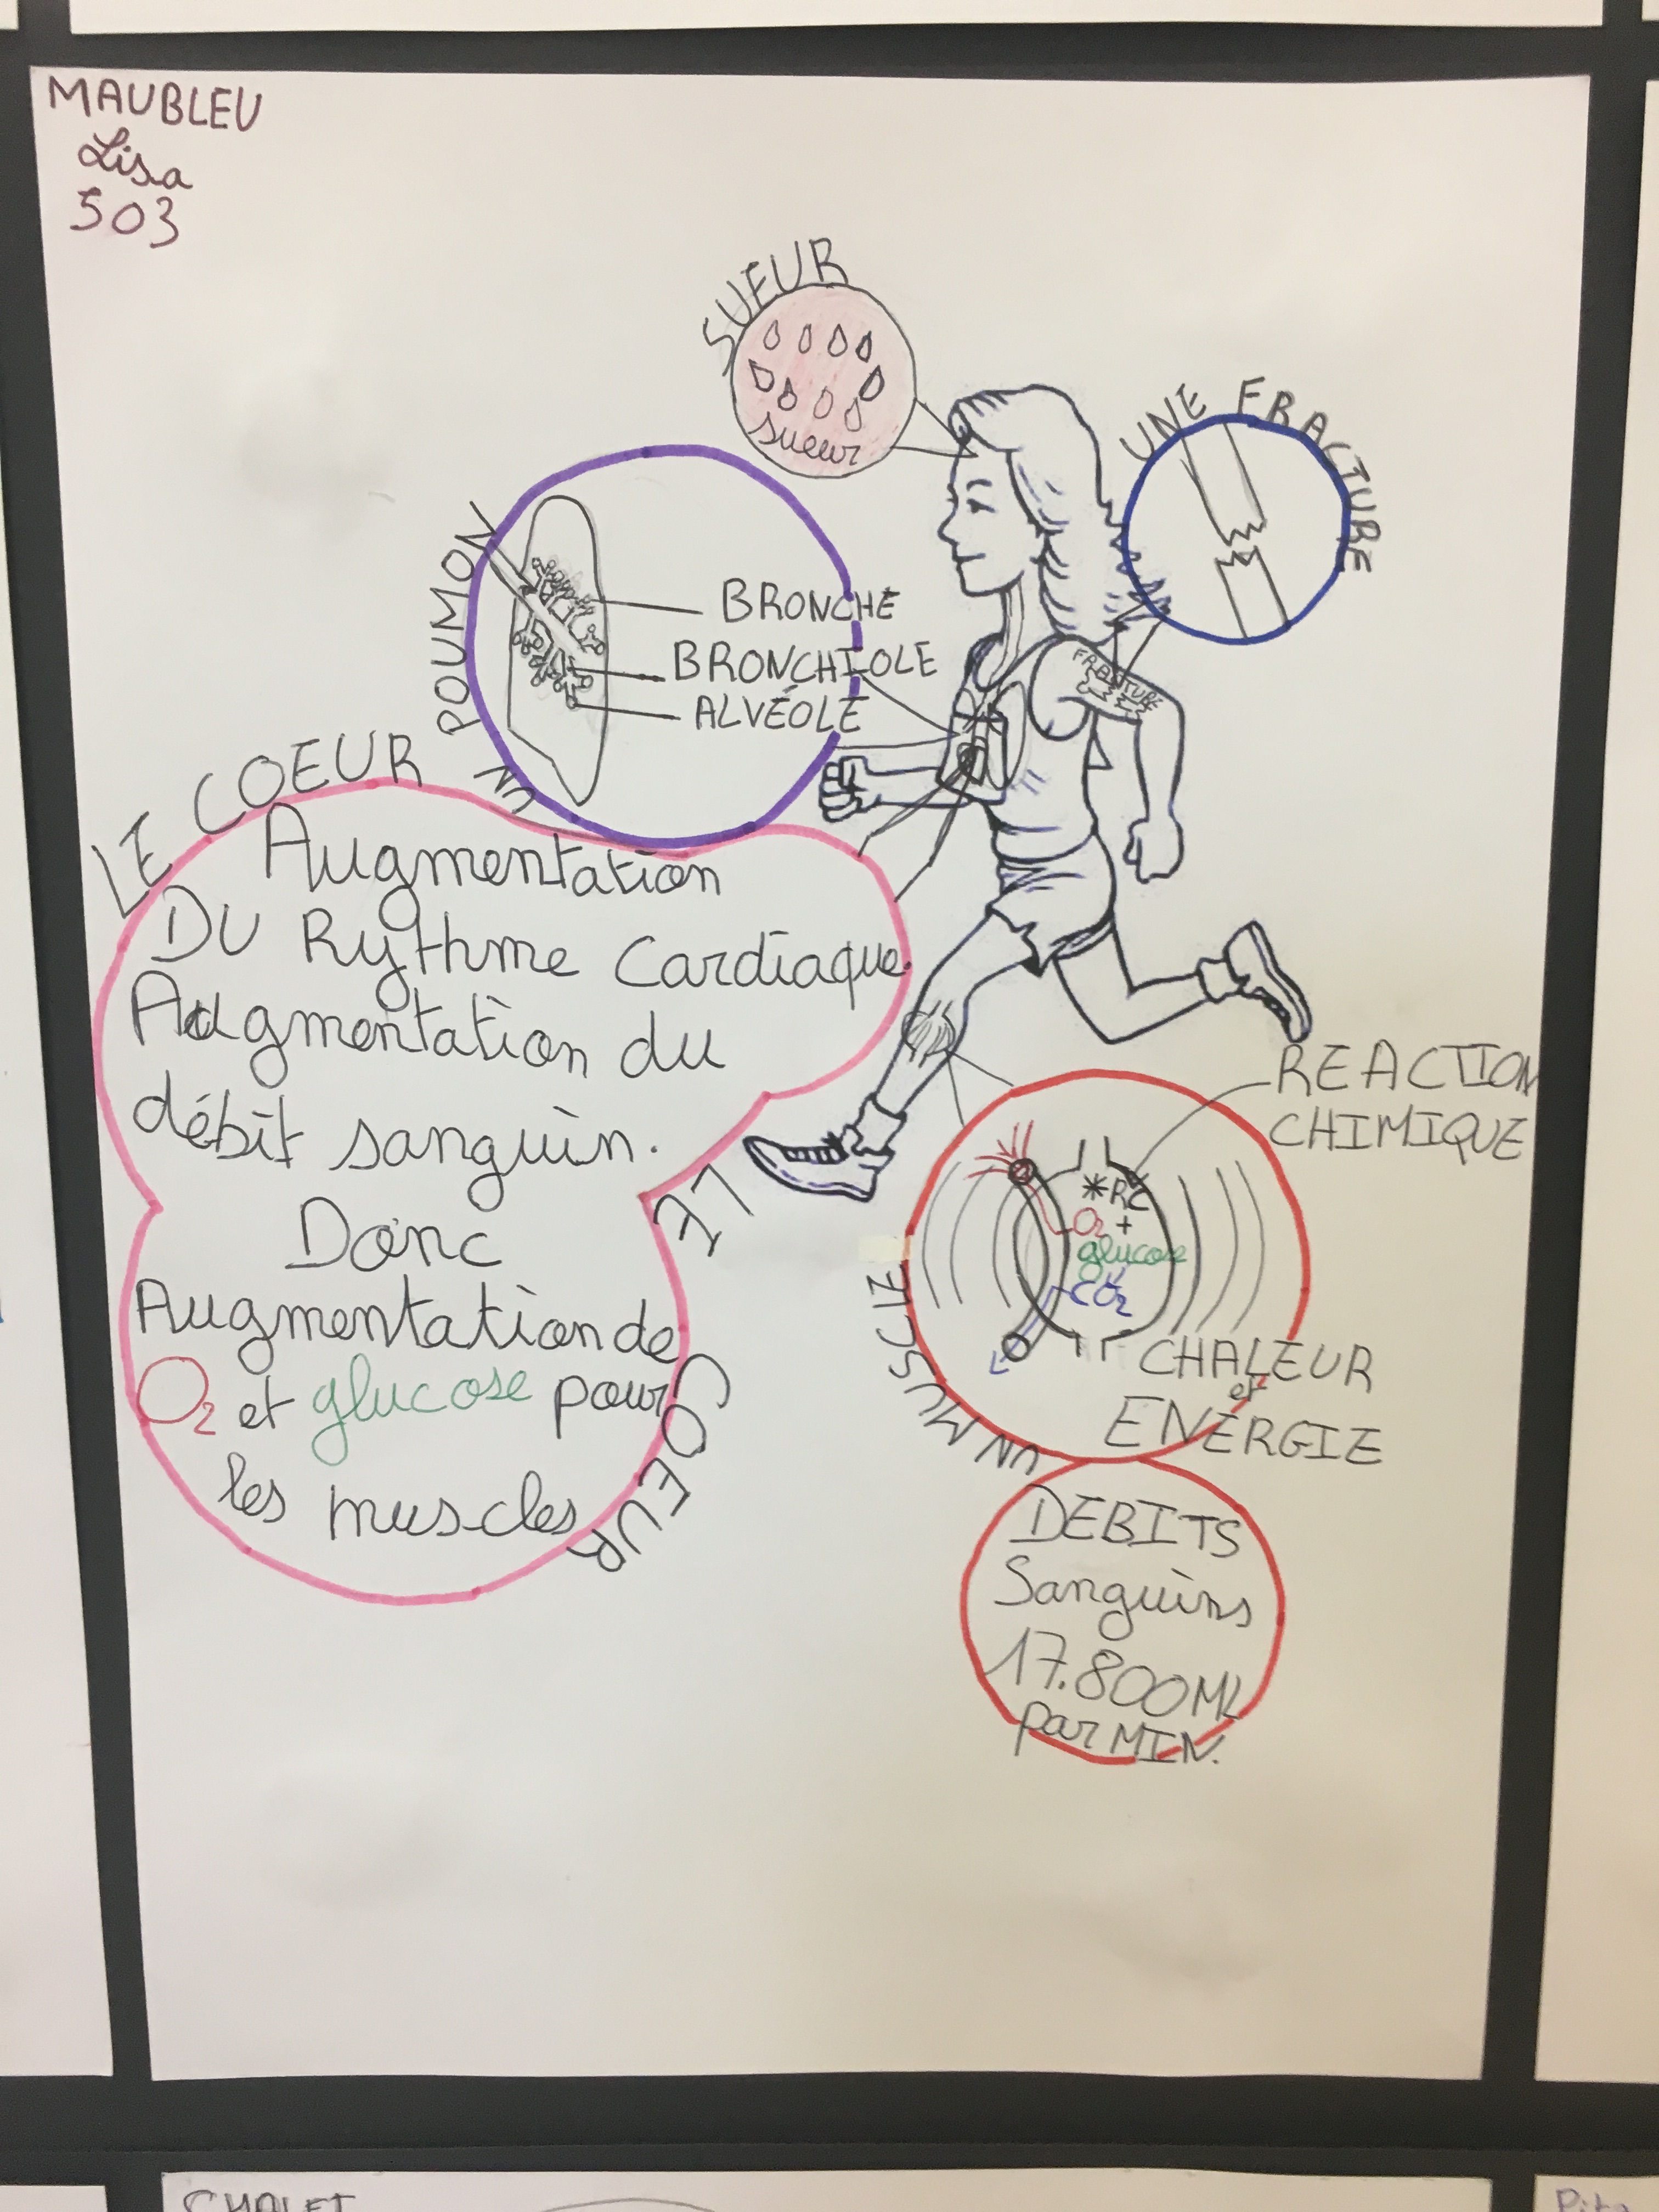 MAUBLEU
Lisa
503
SUEUR
sueur
UNE FRACTURE
FRACTURE
UN POUMON
BRONCHE
BRONCHIOLE
ALVÉOLE
LE COEUR
Augmentation
DU Rythme Cardiaque.
Augmentation du
débit sanguin.
Donc
Augmentation de
O2 et glucose pour
les muscles
LE COEUR
REACTION
CHIMIQUE
*RC
O2 +
glucose
CO2
UN MUSCLE
CHALEUR
et
ENERGIE
DEBITS
Sanguins
17.800ML
par MIN.
CHALET